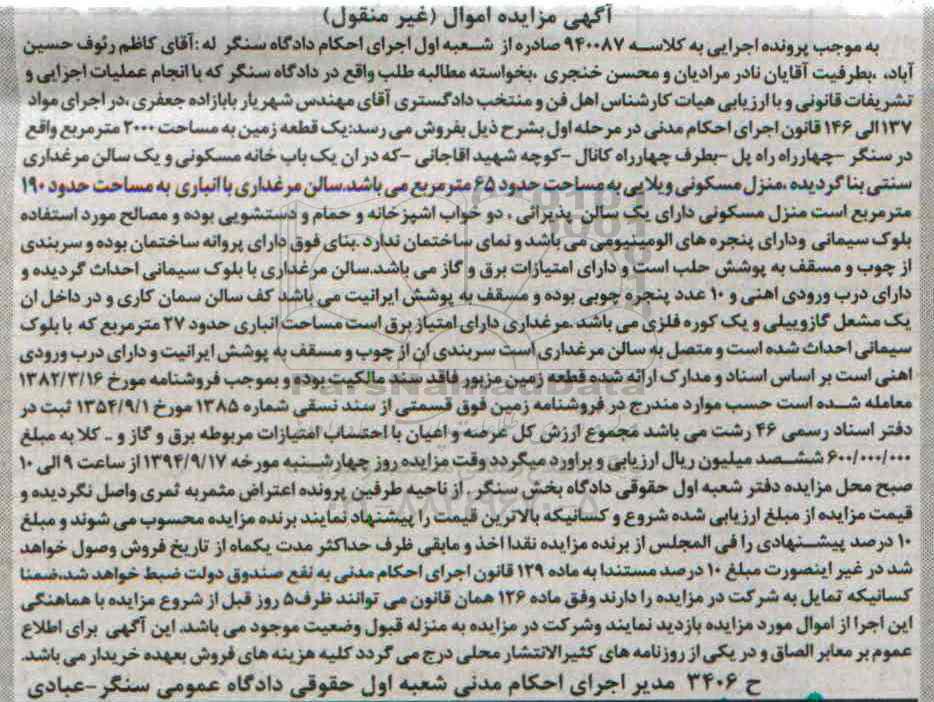 آگهی مزایده اموال (غیر منقول)
به موجب پرونده اجرایی به کلاسه ۹۴۰۰۸۷ صادره از شعبه اول اجرای احکام دادگاه سنگر له :آقای کاظم رئوف حسین
آباد، ،بطرفیت آقایان نادر مرادیان و محسن خنجری ،بخواسته مطالبه طلب واقع در دادگاه سنگر که با انجام عملیات اجرایی و
تشریفات قانونی و با ارزیابی هیات کارشناس اهل فن و منتخب دادگستری آقای مهندس شهریار بابازاده جعفری ،در اجرای مواد
۱۳۷الی ۱۴۶ قانون اجرای احکام مدنی در مرحله اول بشرح ذیل بفروش می رسد:یک قطعه زمین به مساحت ۲۰۰۰ مترمربع واقع
در سنگر -چهارراه راه پل -بطرف چهارراه کانال -کوچه شهید آقاجانی -که در ان یک باب خانه مسکونی و یک سالن مرغداری
سنتی بنا گردیده ،منزل مسکونی ویلایی به مساحت حدود ۶۵ مترمربع می باشد.سالن مرغداری با انباری به مساحت حدود ۱۹۰
مترمربع است منزل مسکونی دارای یک سالن پذیرائی ، دو خواب اشپزخانه و حمام و دستشویی بوده و مصالح مورد استفاده
بلوک سیمانی ودارای پنجره های الومینیومی می باشد و نمای ساختمان ندارد .بنای فوق دارای پروانه ساختمان بوده و سربندی
از چوب و مسقف به پوشش حلب است و دارای امتیازات برق و گاز می باشد.سالن مرغداری با بلوک سیمانی احداث گردیده و
دارای درب ورودی اهنی و ۱۰ عدد پنجره چوبی بوده و مسقف به پوشش ایرانیت می باشد کف سالن سمان کاری و در داخل ان
یک مشعل گازوییلی و یک کوره فلزی می باشد .مرغداری دارای امتیاز برق است مساحت انباری حدود ۲۷ مترمربع که با بلوک
سیمانی احداث شده است و متصل به سالن مرغداری است سربندی ان از چوب و مسقف به پوشش ایرانیت و دارای درب ورودی
اهنی است بر اساس اسناد و مدارک ارائه شده قطعه زمین مزبور فاقد سند مالکیت بوده و بموجب فروشنامه مورخ ۱۳۸۲/۳/۱۶
معامله شده است حسب موارد مندرج در فروشنامه زمین فوق قسمتی از سند نسقی شماره ۱۳۸۵ مورخ ۱۳۵۴/۹/۱ ثبت در
دفتر اسناد رسمی ۴۶ رشت می باشد مجموع ارزش کل عرصه و اعیان با احتساب امتیازات مربوطه برق و گاز و .. کلا به مبلغ
۶۰۰/۰۰۰/۰۰۰ ششصد میلیون ریال ارزیابی و براورد میگردد وقت مزایده روز چهارشنبه مورخه ۱۳۹۴/۹/۱۷ از ساعت ۹ الی ۱۰
صبح محل مزایده دفتر شعبه اول حقوقی دادگاه بخش سنگر . از ناحیه طرفین پرونده اعتراض مثمربه ثمری واصل نگردیده و
قیمت مزایده از مبلغ ارزیابی شده شروع و کسانیکه بالاترین قیمت را پیشنهاد نمایند برنده مزایده محسوب می شوند و مبلغ
۱۰ درصد پیشنهادی را فی المجلس از برنده مزایده نقدا اخذ و مابقی ظرف حداکثر مدت یکماه از تاریخ فروش وصول خواهد
شد در غیر اینصورت مبلغ ۱۰ درصد مستندا به ماده ۱۲۹ قانون اجرای احکام مدنی به نفع صندوق دولت ضبط خواهد شد،ضمنا
کسانیکه تمایل به شرکت در مزایده را دارند وفق ماده ۱۲۶ همان قانون می توانند ظرف۵ روز قبل از شروع مزایده با هماهنگی
این اجرا از اموال مورد مزایده بازدید نمایند وشرکت در مزایده به منزله قبول وضعیت موجود می باشد. این آگهی برای اطلاع
عموم بر معابر الصاق و در یکی از روزنامه های کثیرالانتشار محلی درج می گردد کلیه هزینه های فروش بعهده خریدار می باشد.
ح ۳۴۰۶ مدیر اجرای احکام مدنی شعبه اول حقوقی دادگاه عمومی سنگر-عبادی